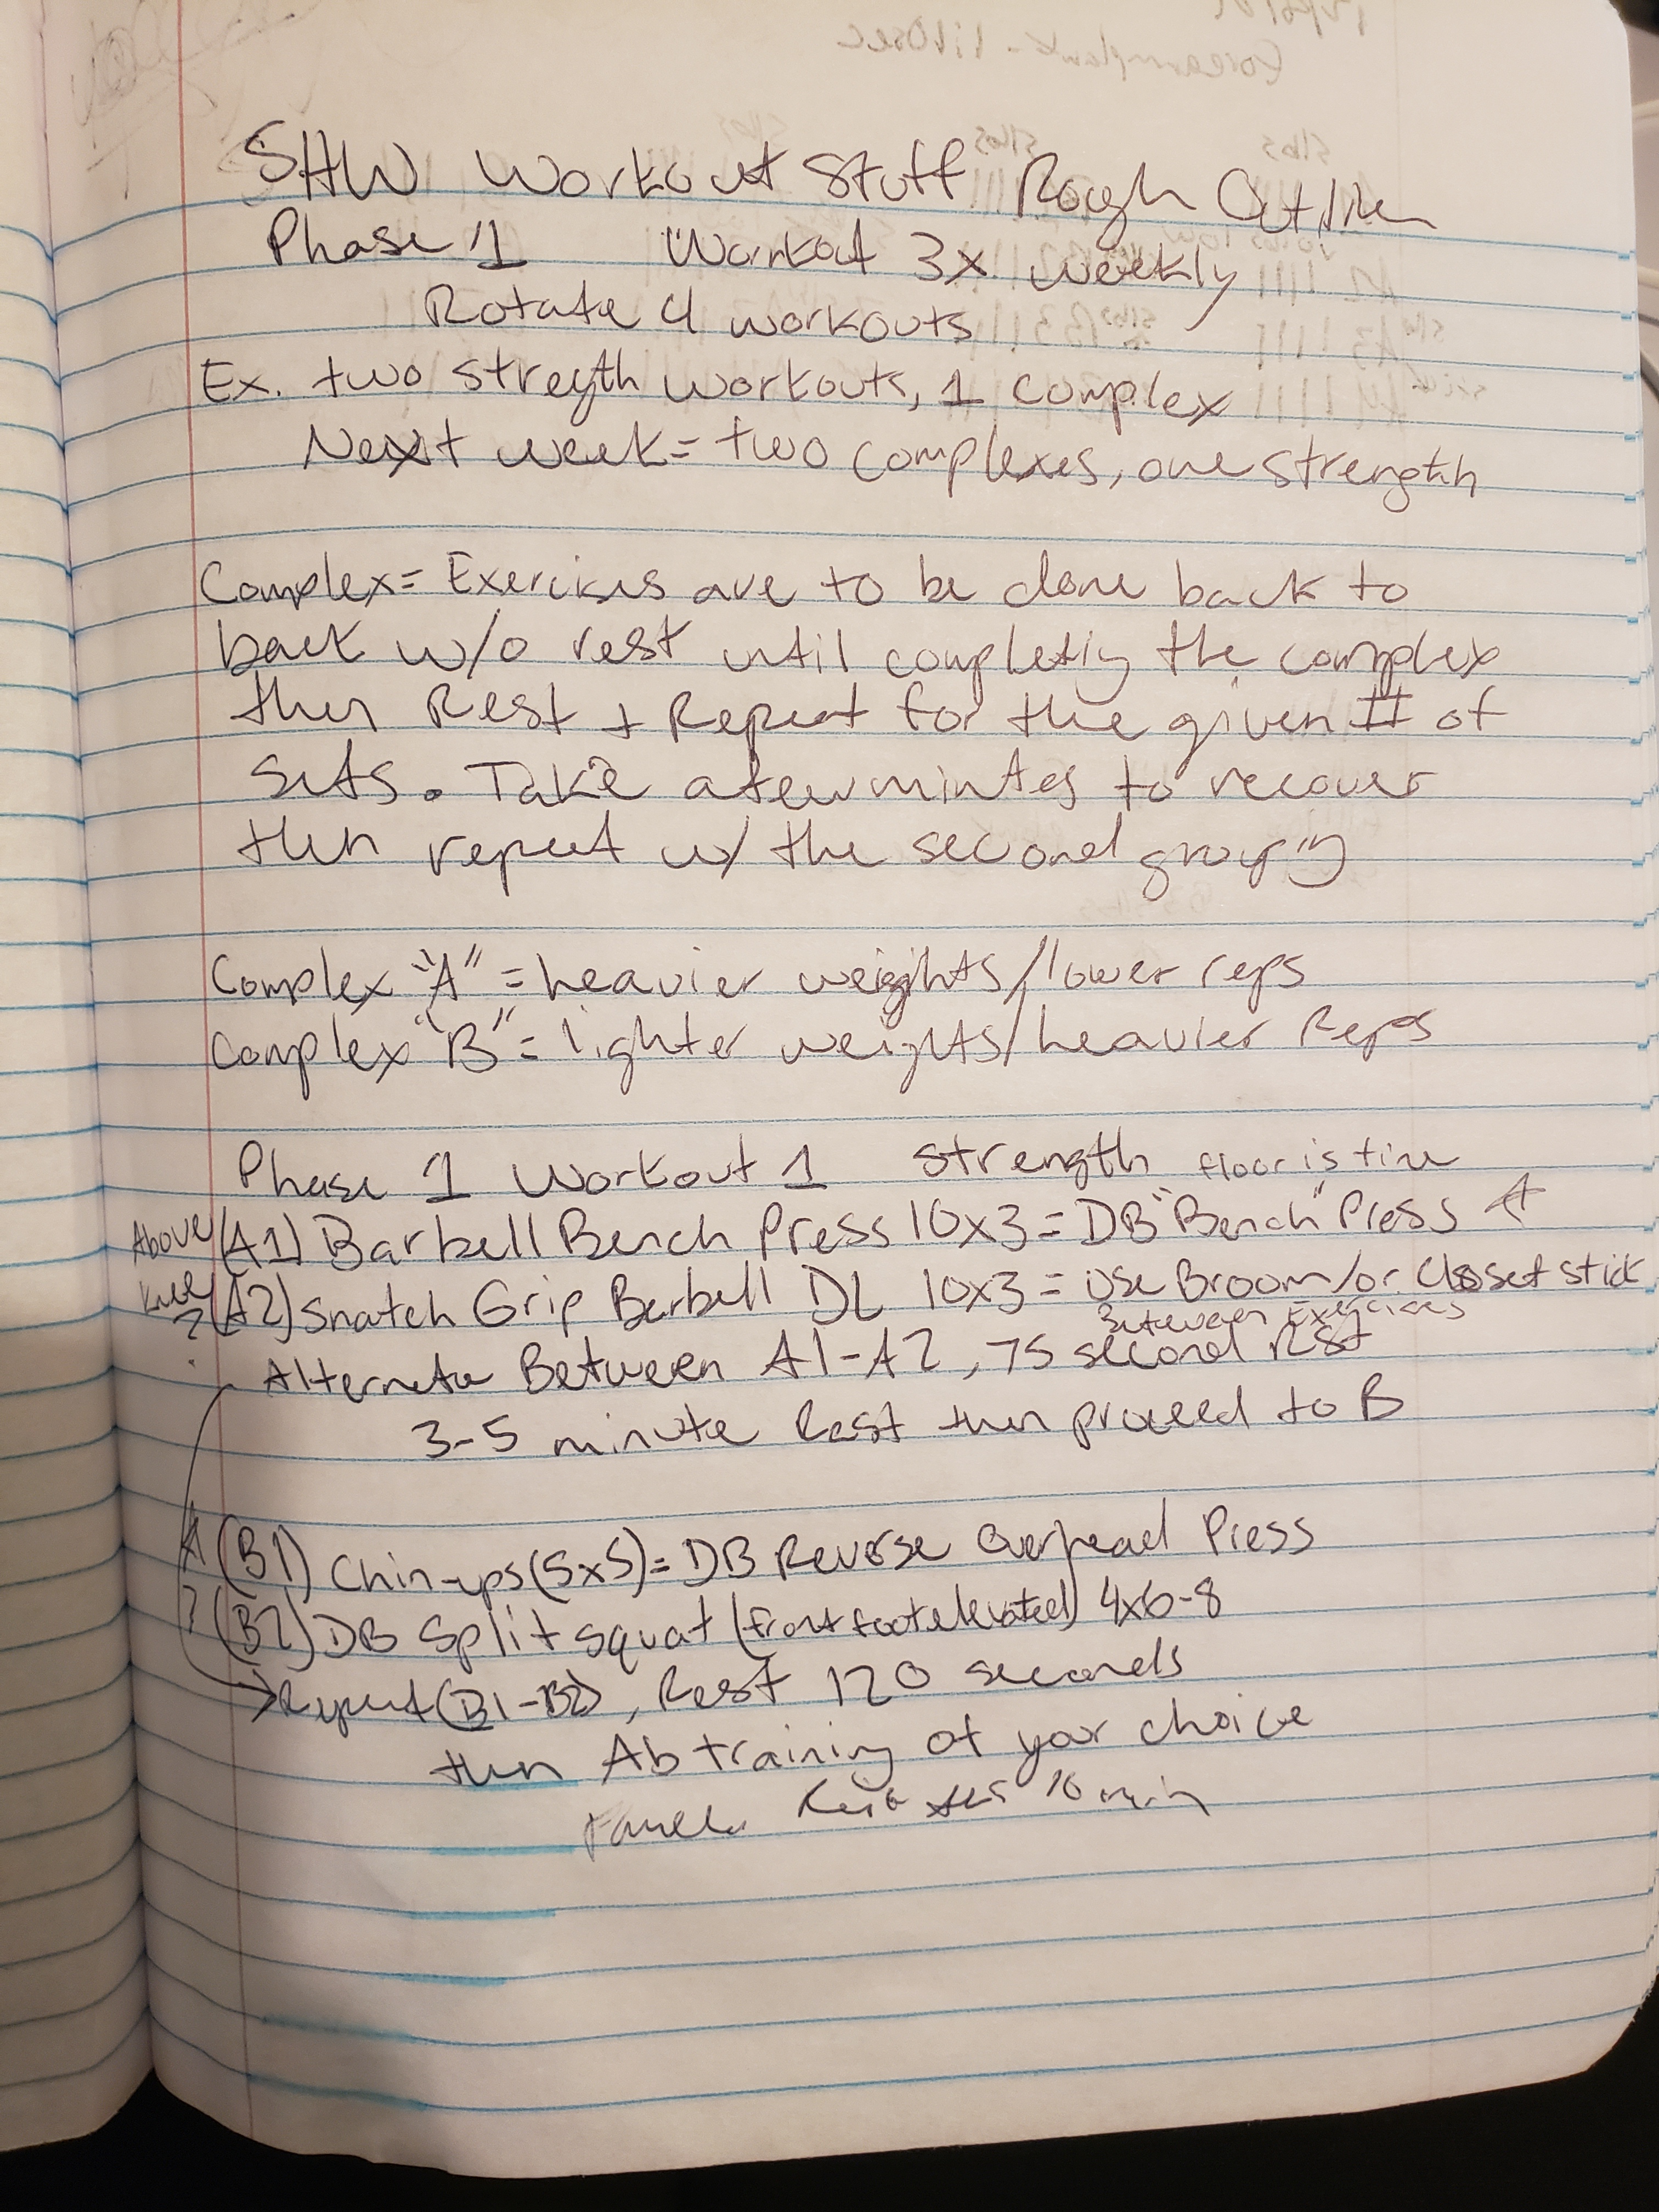 SHW Workout Stuff Rough Outline
Phase 1 Workout 3x weekly
Rotate 4 workouts
Ex. two stregth workouts, 1 complex
Next week = two complexes, one strength
Complex = Exercises are to be done back to
back w/o rest until completing the complex
then Rest + Repeat for the given # of
sets. Take a few mintes to recover
then repeat w/ the second grouping
Complex "A" = heavier weights/lower reps
Complex "B" = lighter weights/heavier Reps
Phase 1 Workout 1 Strength floor is fine
Above (A1) Barbell Bench Press 10x3 = DB "Bench" Press
knee ? (A2) Snatch Grip Barbell DL 10x3 = Use Broom/or Closet stick
Between Exercises
Alternate Between A1-A2, 75 second Rest
3-5 minute Rest then proceed to B
(B1) Chin-ups (5x5) = DB Reverse Overhead Press
? (B2) DB Split squat (front foot elevated) 4x6-8
Repeat (B1-B2), Rest 120 seconds
then Ab training of your choice
10 min